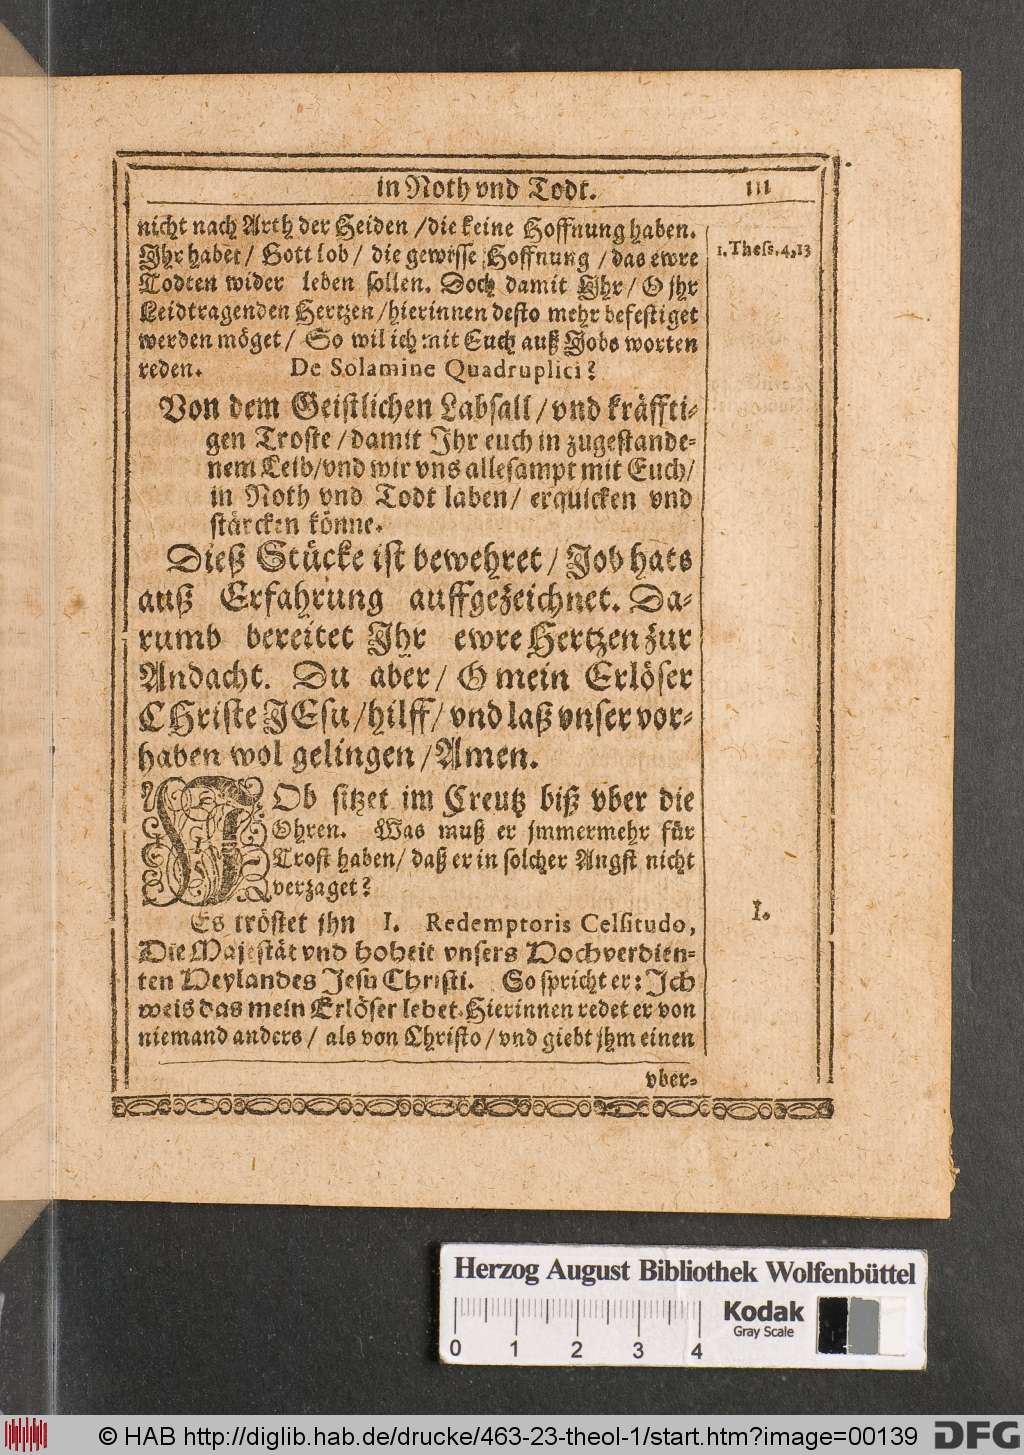 in Noth vnd Todt. 111
nicht nach Arth der Heiden / die keine Hoffnung haben.
1. Thess. 4,13
Ihr habet / Gott lob / die gewisse Hoffnung / das ewre
Todten wider leben sollen. Doch damit Ihr / O jhr
Leidtragenden Hertzen / hierinnen desto mehr befestiget
werden möget / So wil ich mit Euch auß Jobs worten
reden. De Solamine Quadruplici?
Von dem Geistlichen Labsall / vnd kräffti-
gen Troste / damit Ihr euch in zugestande-
nem Leid / vnd wir vns allesampt mit Euch /
in Noth vnd Todt laben / erquicken vnd
stärcken könne.
Dieß Stücke ist bewehret / Job hats
auß Erfahrung auffgezeichnet. Da-
rumb bereitet Ihr ewre Hertzen zur
Andacht. Du aber / O mein Erlöser
CHriste JEsu / hilff / vnd laß vnser vor-
haben wol gelingen / Amen.
JOb sitzet im Creutz biß vber die
Ohren. Was muß er jmmermehr für
Trost haben / daß er in solcher Angst nicht
verzaget?
I.
Es tröstet jhn I. Redemptoris Celsitudo,
Die Majestät vnd hoheit vnsers Hochverdien-
ten Heylandes Jesu Christi. So spricht er: Ich
weis das mein Erlöser lebet. Hierinnen redet er von
niemand anders / als von Christo / vnd giebt jhm einen
vber-
Herzog August Bibliothek Wolfenbüttel
Kodak
Gray Scale
0 1 2 3 4
© HAB http://diglib.hab.de/drucke/463-23-theol-1/start.htm?image=00139
DFG